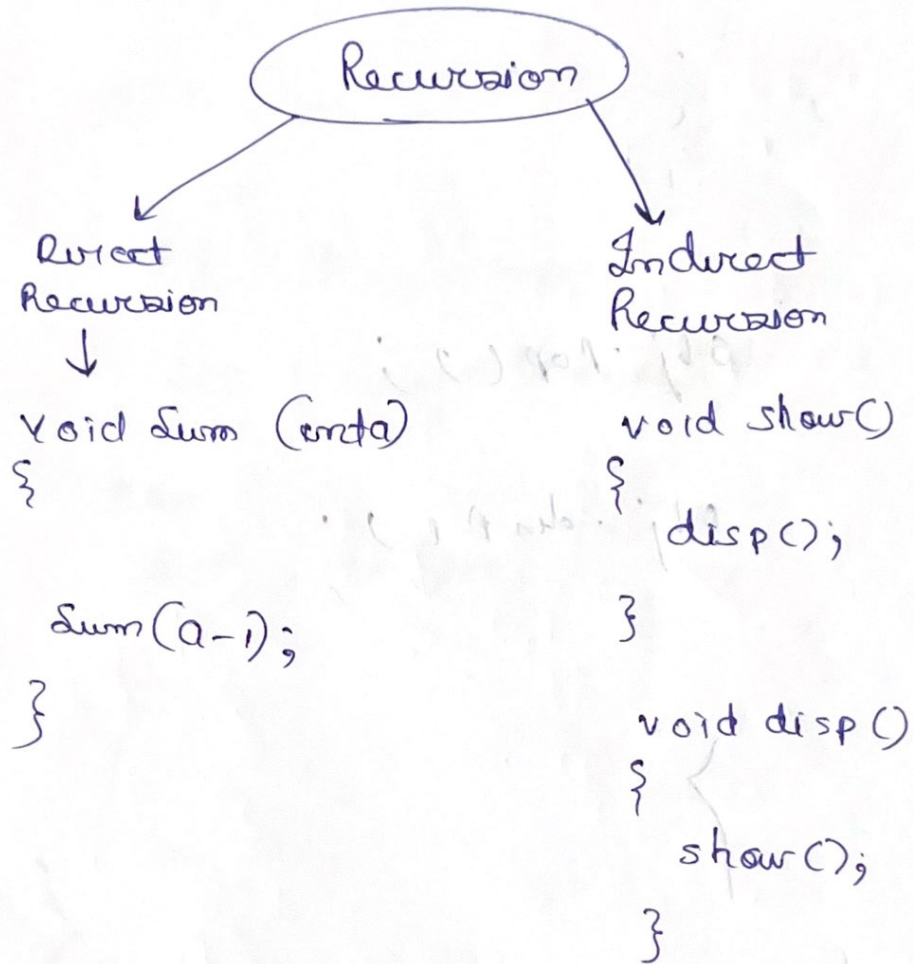 Recursion
Direct
Recursion
void sum (int a)
{
sum(a-1);
}
Indirect
Recursion
void show()
{
disp();
}
void disp()
{
show();
}